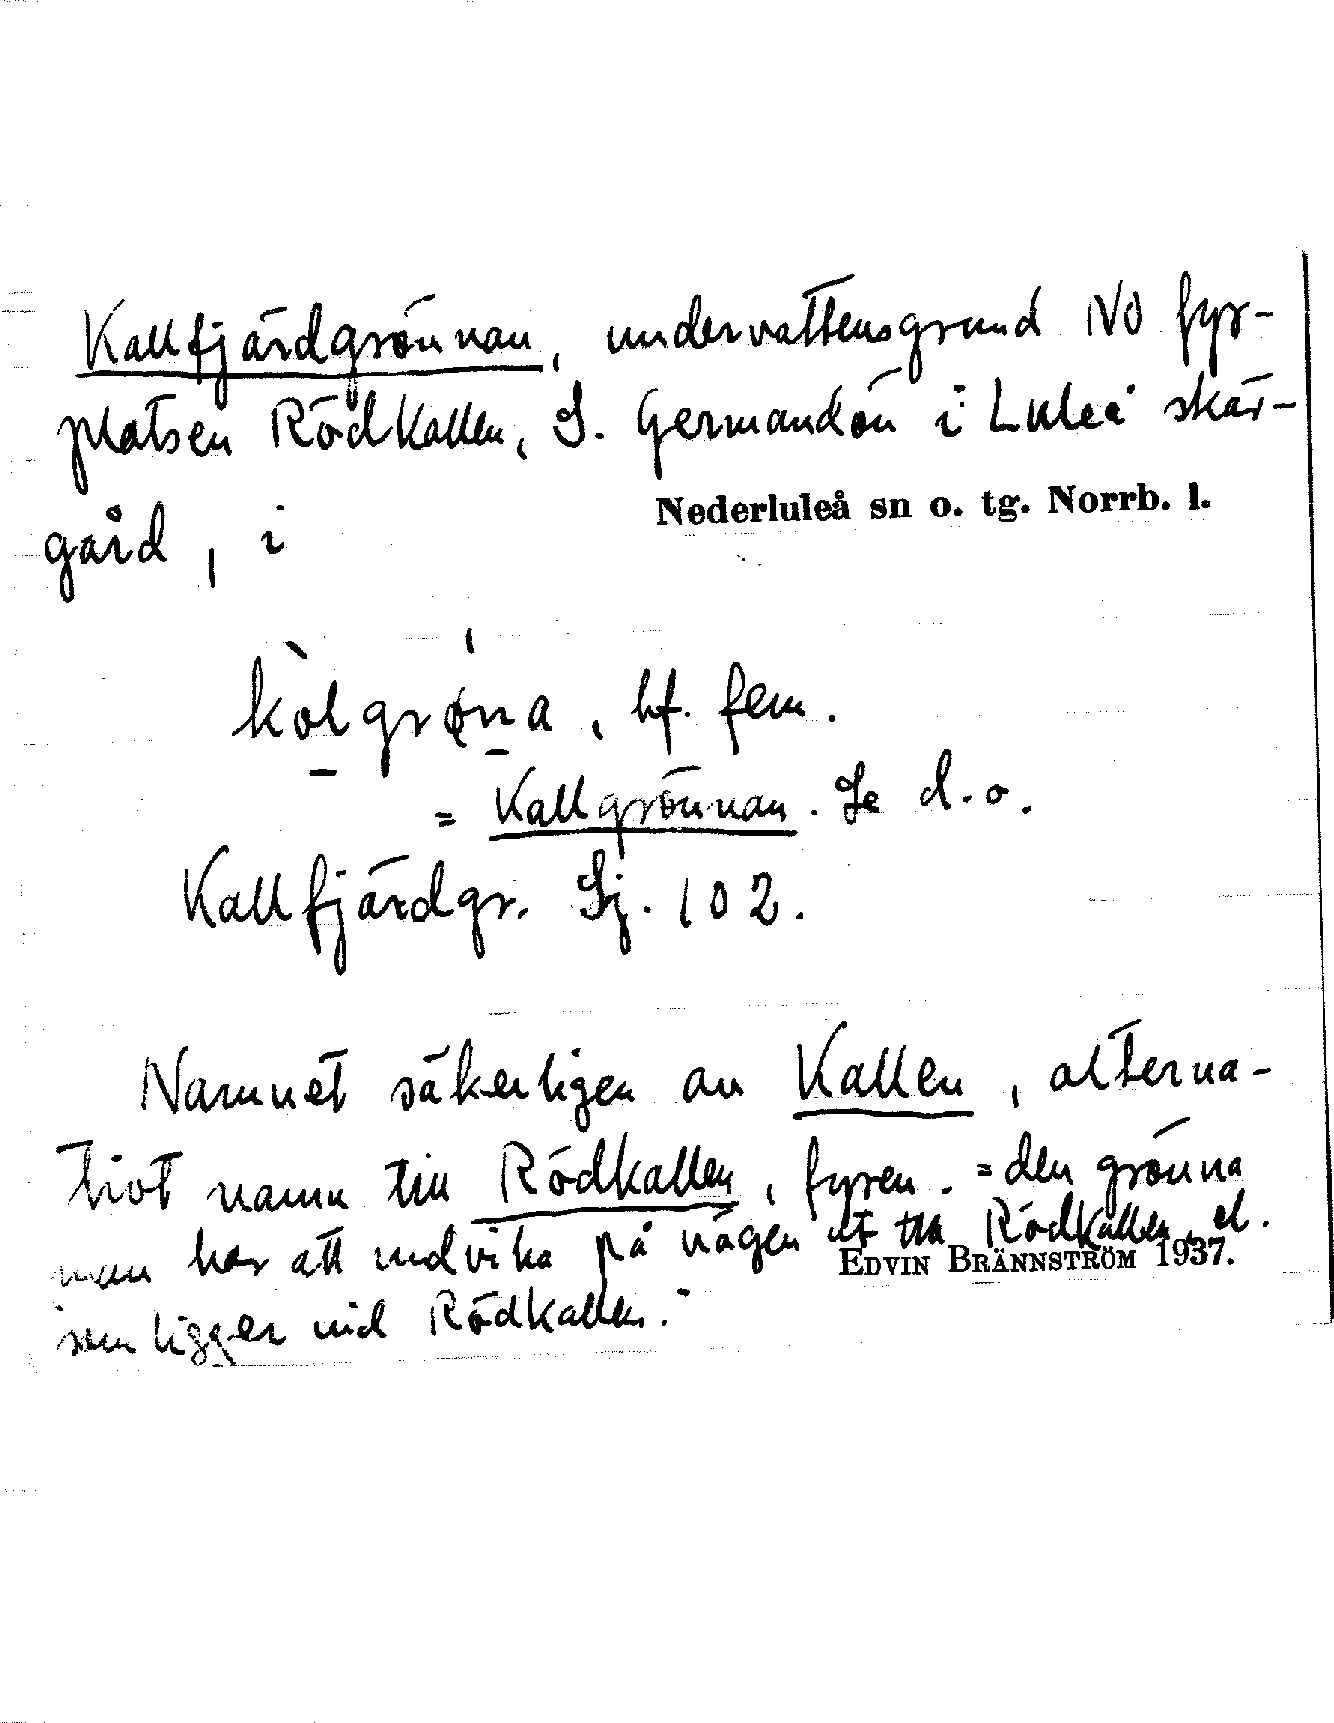 Kallfjärdgrönnan, undervattensgrund NO fyr-
platsen Rödkallen, S. Germandön i Luleå skär-
gård, i Nederluleå sn o. tg. Norrb. l.
kòlgrøna, bf. fem.
= Kallgrönnan. Se d.o.
Kallfjärdgr. Sj. 102.
Namnet säkerligen av Kallen, alterna-
tivt namn till Rödkallen, fyren. = den grönna
man har att undvika på vägen ut till Rödkallen, el.
som ligger vid Rödkallen.
EDVIN BRÄNNSTRÖM 1937.